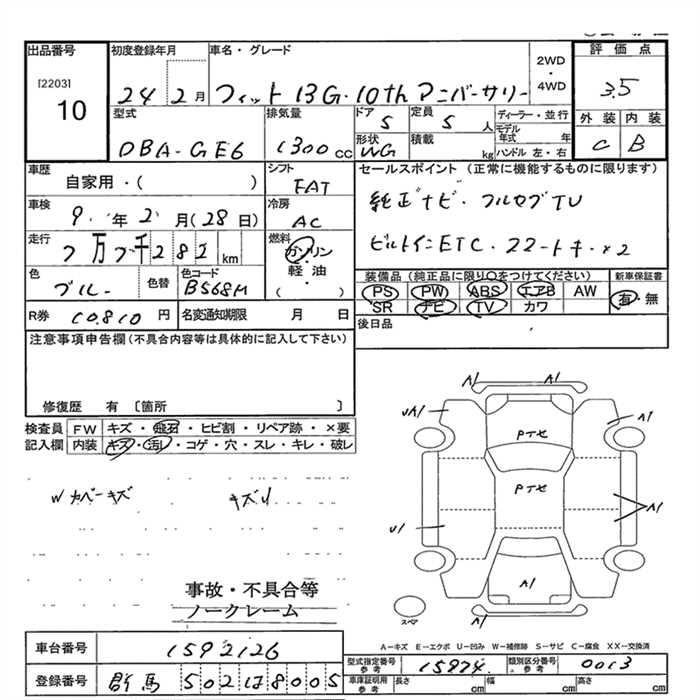 出品番号
[2203]
10
初度登録年月
24 2月
車名・グレード
フィット 13G・10th アニバーサリー
2WD
・
4WD
評価点
3.5
外装 内装
C B
型式
DBA-GE6
排気量
1300 CC
ドア
5
定員
5 人
形状
WG
積載
kg
ディーラー・並行
モデル年式 年
ハンドル 左・右
車歴
自家用・( )
シフト
FAT
車検
9.年2月(28日)
冷房
AC
走行
7万7千282km
燃料
ガソリン
・
軽油
( )
色
ブルー
色替
色コード
B568M
R券
10.810円
名変通知期限 月 日
セールスポイント (正常に機能するものに限ります)
純正ナビ・フルセグTV
ビルトインETC・スマートキー×2
装備品 (純正品に限り○をつけてください)
PS PW ABS エアB AW
SR ナビ TV カワ
新車保証書
有・無
後日品
注意事項申告欄(不具合内容等は具体的に記入して下さい)
修復歴 有 〔箇所 〕
検査員 FW キズ・飛石・ヒビ割・リペア跡・×要
記入欄 内装 キズ・汚レ・コゲ・穴・スレ・キレ・破レ
W カバーキズ キズU
A1
UA1 A1
Pアセ
Pアセ
A1
U1
A1
A1
スペア
事故・不具合等
ノークレーム
A-キズ E-エクボ U-凹み W-補修跡 S-サビ C-腐食 XX-交換済
車台番号 1592126
登録番号 群馬 502は8005
型式指定番号
参考
15974
類別区分番号
参考
0013
車庫証明用
参考
長さ cm 幅 cm 高さ cm